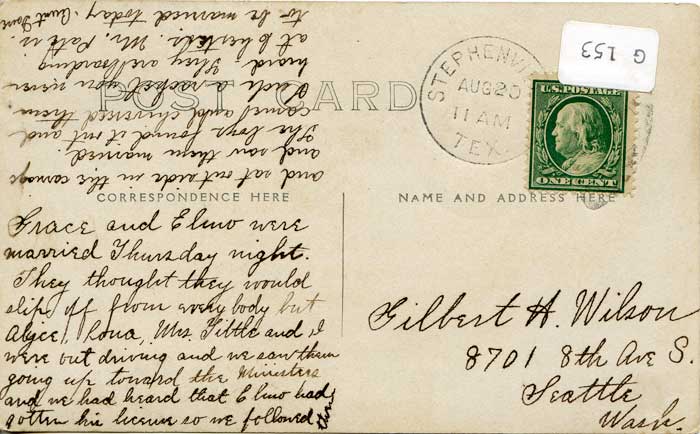 G 153
STEPHENVI
AUG 20
11 AM
TEX.
U.S. POSTAGE
ONE CENT
POST CARD
CORRESPONDENCE HERE
NAME AND ADDRESS HERE
Grace and Elmo were
married Thursday night.
They thought they would
slip off from every body but
Alice, Rona, Mrs. Tittle and I
were out driving and we saw them
going up toward the Ministers
and we had heard that Elmo had
gotten his license so we followed them
and sat outside in the carriage
and saw them married.
The boys found it out and
came and chivarred them
Such a racket you never
heard. They are boarding
at Chesters. Mr. Pate is
to be married today. Aunt Dove
Gilbert H. Wilson
8701 8th Ave S.
Seattle
Wash.